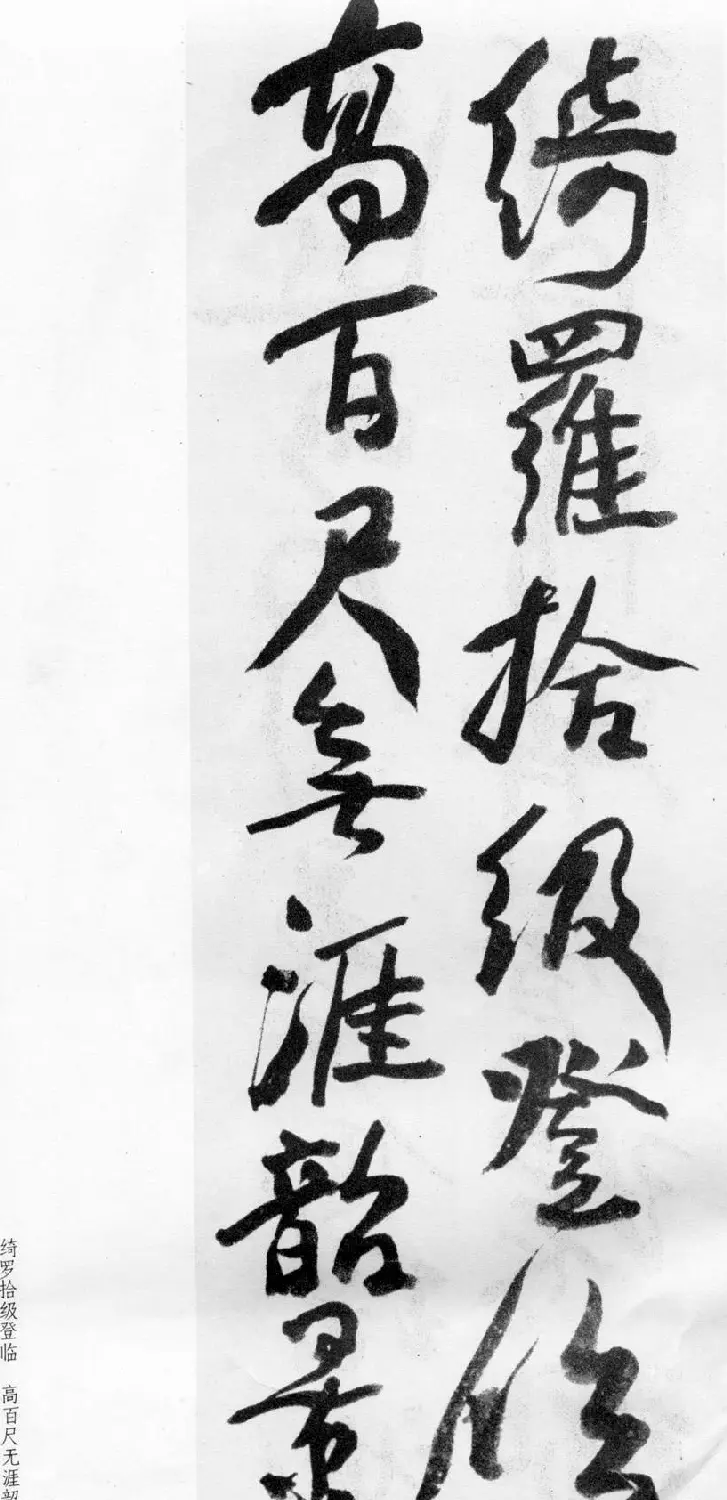 綺羅拾級登臨
高百尺無涯韶景
绮罗拾级登临 高百尺无涯韶